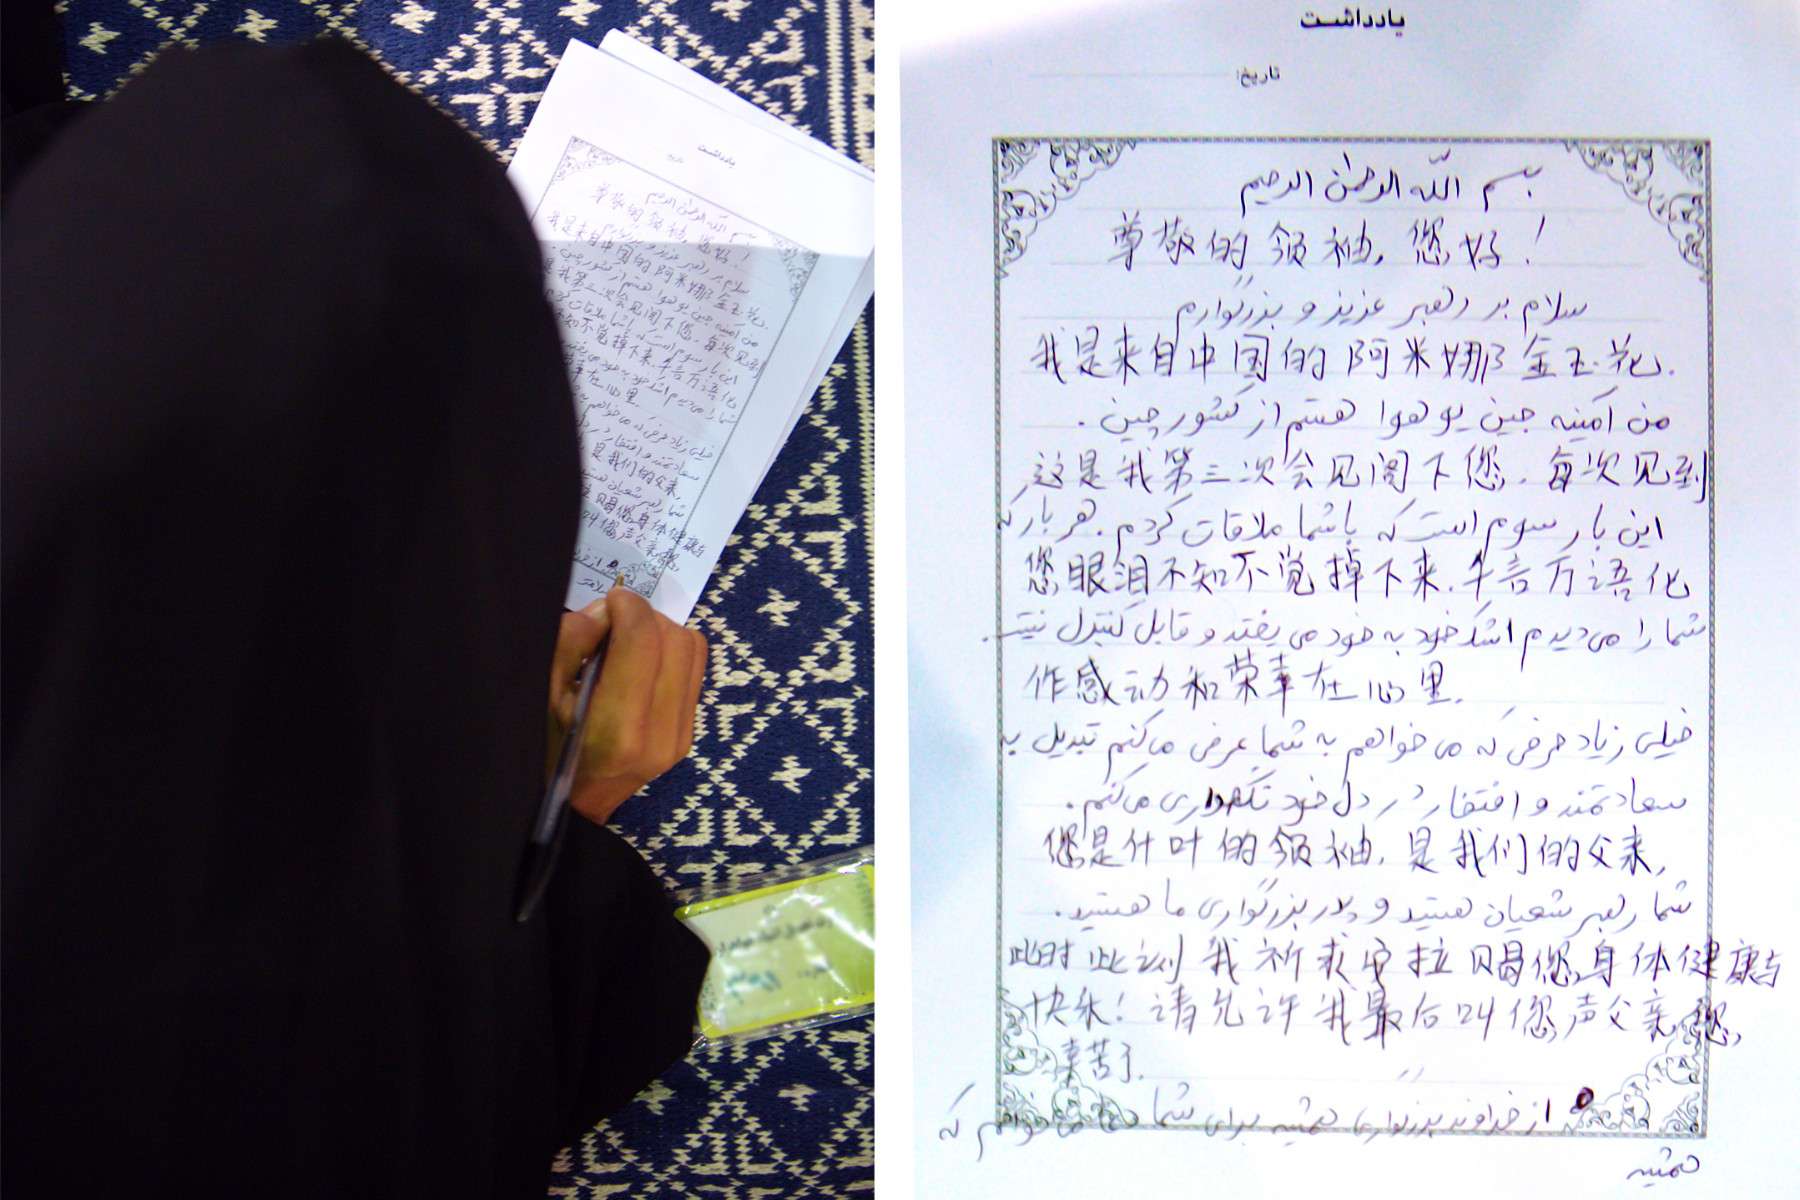 یادداشت
تاریخ:
بسم اللّه الرحمٰن الرحیم
尊敬的领袖,您好!
سلام بر رهبر عزیز و بزرگوارم
我是来自中国的阿米娜金玉花.
من آمینه جین یو هوا هستم از کشور چین.
这是我第三次会见阁下您.每次见到
این بار سوم است که باشما ملاقات کردم. هر بار که
您眼泪不知不觉掉下来.千言万语化
شما را می‌دیدم اشک خود به خود می یفتد و قابل کنترل نیست.
作感动和荣幸在心里.
خیلی زیاد حرفی که می خواهم به شما عرض می‌کنم تبدیل به
سعادتمند و افتخار در دل خود نگهداری می‌کنم.
您是什叶的领袖.是我们的父亲,
شما رهبر شعیان هستید و پدر بزرگواری ما هستید.
此时此刻我祈求安拉赐您身体健康与
快乐!请允许我最后叫您声父亲,您
辛苦了.
از خداوند بزرگواری همیشه برای شما دعا می خواهم که
همیشه